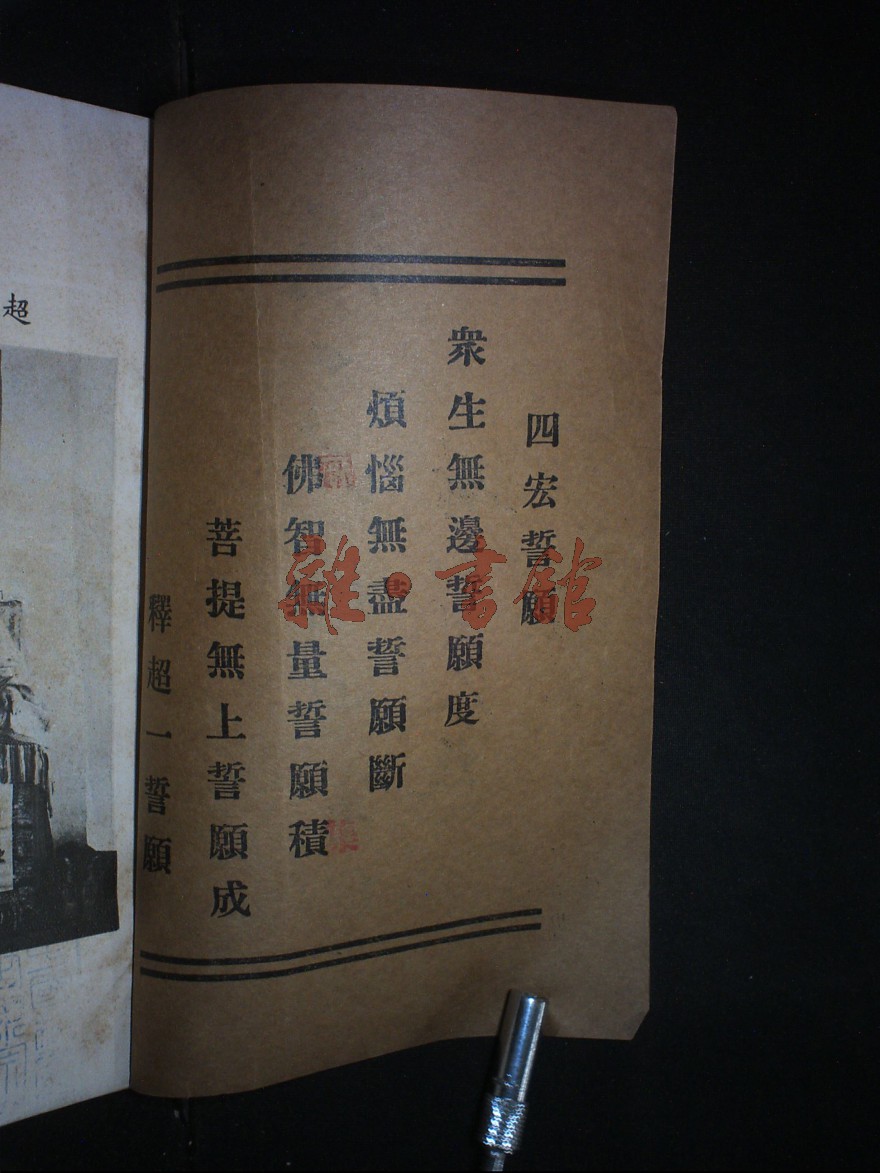 四宏誓願
衆生無邊誓願度
煩惱無盡誓願斷
佛智無量誓願積
菩提無上誓願成
釋超一誓願
超
雜·書館